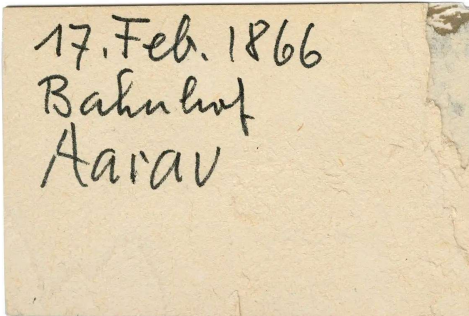 17. Feb. 1866
Bahnhof
Aarau